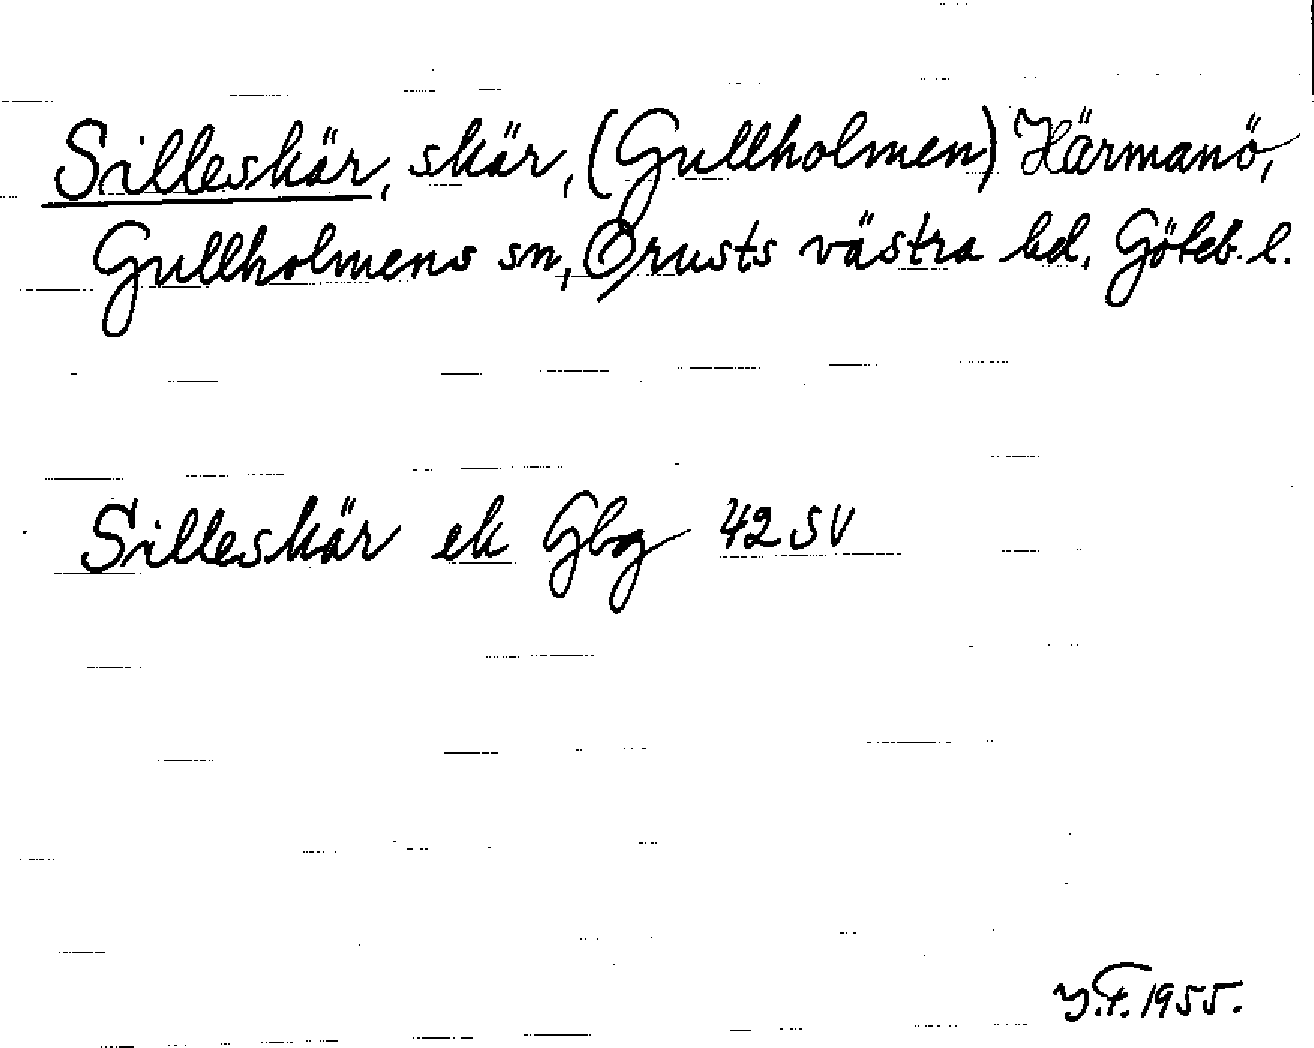 Silleskär, skär, (Gullholmen) Härmanö,
Gullholmens sn, Orusts västra hd. Göteb. l.
Silleskär ek Gbg 42 SV
Y.F. 1955.